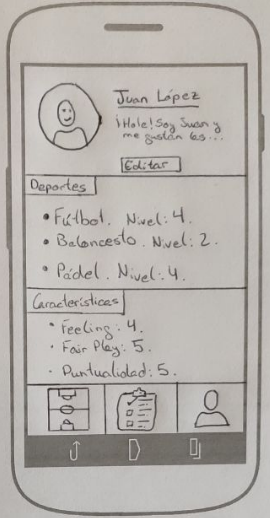 Juan López
¡Hola! Soy Juan y
me gustan las...
Editar
Deportes
• Fútbol. Nivel: 4.
• Baloncesto. Nivel: 2.
• Pádel. Nivel: 4.
Características
• Feeling: 4.
• Fair Play: 5.
• Puntualidad: 5.